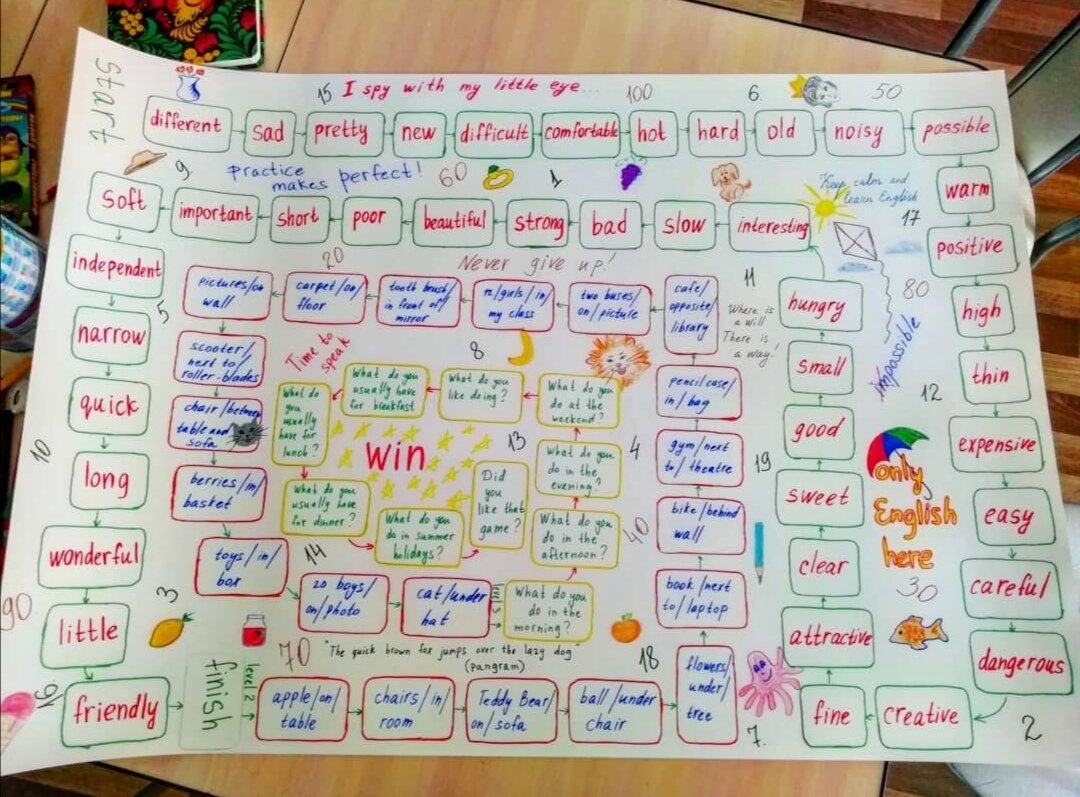 Start
15 I spy with my little eye... 100 6. 50
different
sad
pretty
new
difficult
comfortable
hot
hard
old
noisy
possible
warm
positive
high
thin
expensive
easy
careful
dangerous
creative
fine
attractive
clear
sweet
good
small
hungry
interesting
slow
bad
strong
beautiful
poor
short
important
soft
independent
narrow
quick
long
wonderful
little
friendly
finish
9
Practice
makes perfect!
60
1
Keep calm and
learn English
17
20
Never give up!
11
Where is
a will
There is
a way!
80
impossible
12
5
Time to
speak
8
10
13
4
19
only
English
here
40
14
30
3
90
16
70
"The quick brown fox jumps over the lazy dog"
(pangram)
18
7.
2
level 2
apple/on/
table
chairs/in/
room
Teddy Bear/
on/sofa
ball/under
chair
flowers/
under/
tree
book/next
to/laptop
bike/behind
wall
gym/next
to/theatre
pencil case/
in/bag
cafe/
opposite/
library
two buses/
on/picture
12/girls/in/
my class
tooth brush/
in front of/
mirror
carpet/on/
floor
pictures/on
wall
scooter/
next to/
roller-blades
chair/between
table and
sofa
berries/in/
basket
toys/in/
box
20 boys/
on/photo
cat/under
hat
level 3
What do you
do in the
morning?
What do you
do in the
afternoon?
What do you
do in the
evening?
What do you
do at the
weekend?
What do you
like doing?
What do you
usually have
for breakfast
What do
you
usually
have for
lunch?
What do you
usually have
for dinner?
What do you
do in summer
holidays?
Did
you
like that
game?
win